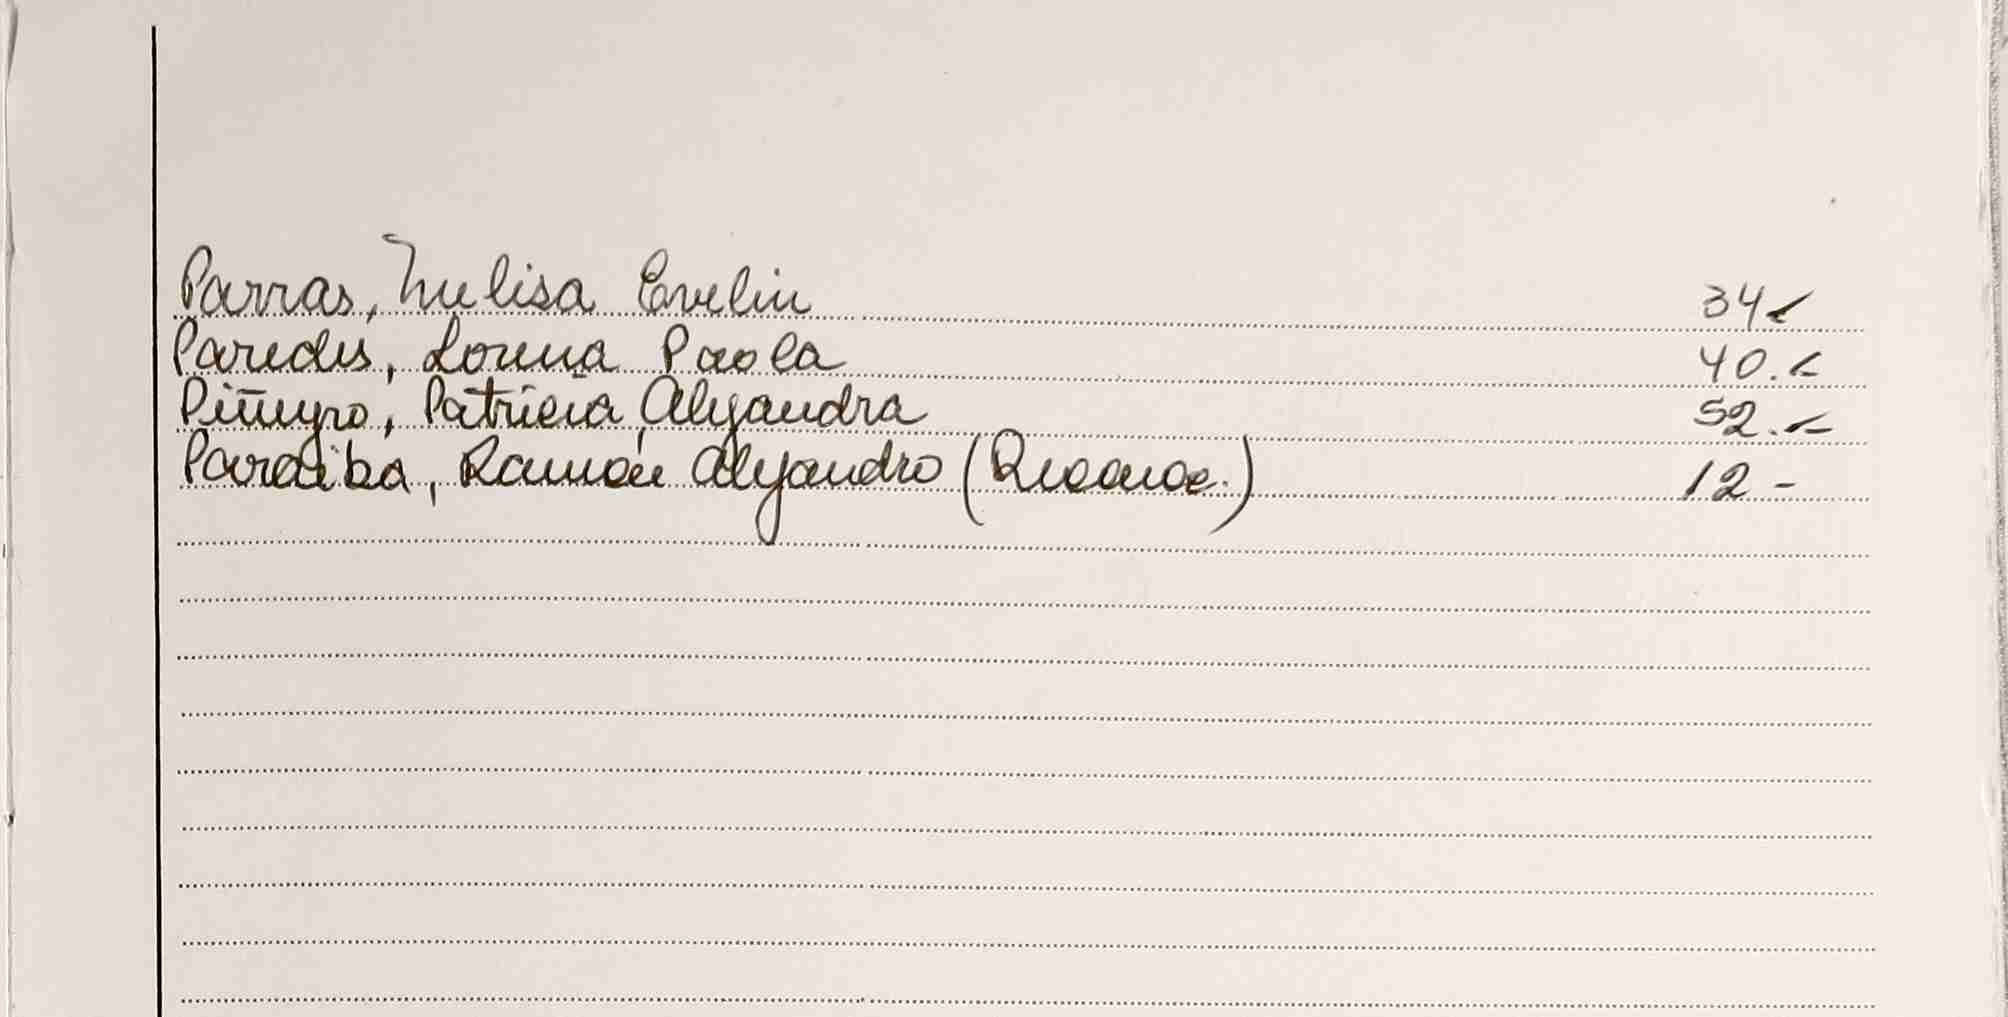 Parras, Melisa Evelin 34
Paredes, Lorena Paola 40.
Piñeyro, Patricia Alejandra 52.
Paraiba, Ramón Alejandro 12 -